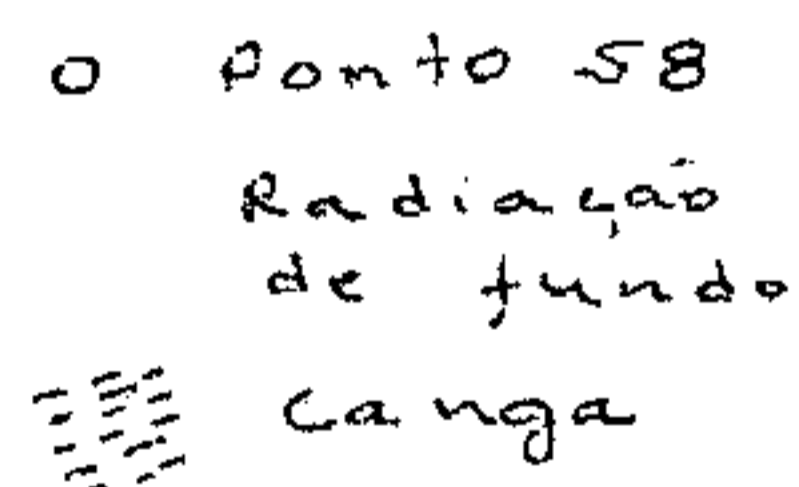 O Ponto 58
Radiação
de fundo
Canga